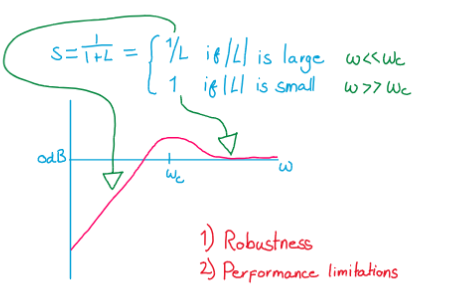 S = 1/(1+L) = { 1/L if |L| is large ω<<ωc
1 if |L| is small ω>>ωc
0dB
ωc
ω
1) Robustness
2) Performance limitations